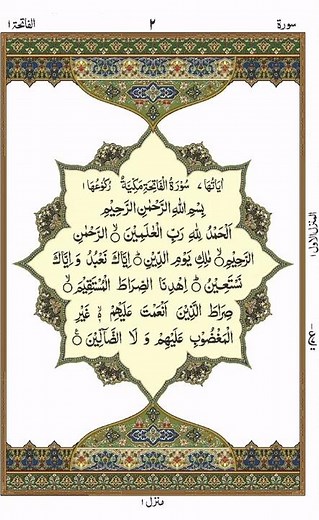 سورة ٢ الفاتحة ١
اٰيَاتُهَا ٧ سُوْرَةُ الْفَاتِحَةِ مَكِّيَّةٌ رُكُوْعُهَا ١
بِسْمِ اللّٰهِ الرَّحْمٰنِ الرَّحِيْمِ
اَلْحَمْدُ لِلّٰهِ رَبِّ الْعٰلَمِيْنَ ۙ الرَّحْمٰنِ
الرَّحِيْمِ ۙ مٰلِكِ يَوْمِ الدِّيْنِ ؕ اِيَّاكَ نَعْبُدُ وَ اِيَّاكَ
نَسْتَعِيْنُ ؕ اِهْدِنَا الصِّرَاطَ الْمُسْتَقِيْمَ ۙ
صِرَاطَ الَّذِيْنَ اَنْعَمْتَ عَلَيْهِمْ ۙ غَيْرِ
الْمَغْضُوْبِ عَلَيْهِمْ وَ لَا الضَّآلِّيْنَ
المنزل الاول ١
منزل ١